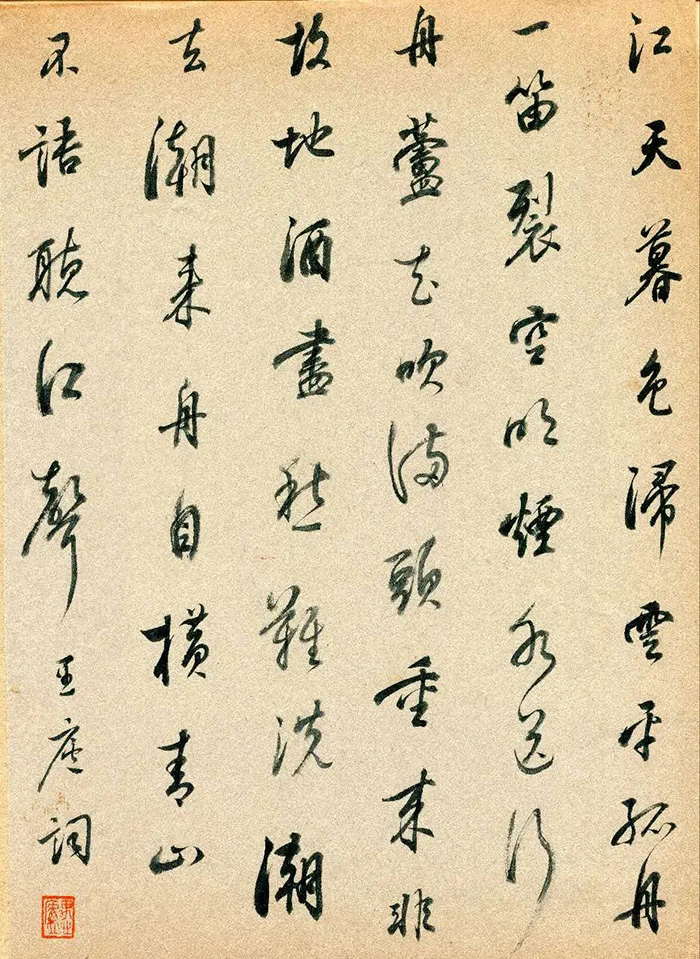 江天暮色歸雲平孤舟
一笛裂空明煙水送行
舟蘆花吹滿頭重來非
故地酒盡愁難洗潮
去潮來舟自橫青山
不語聽江聲 詞